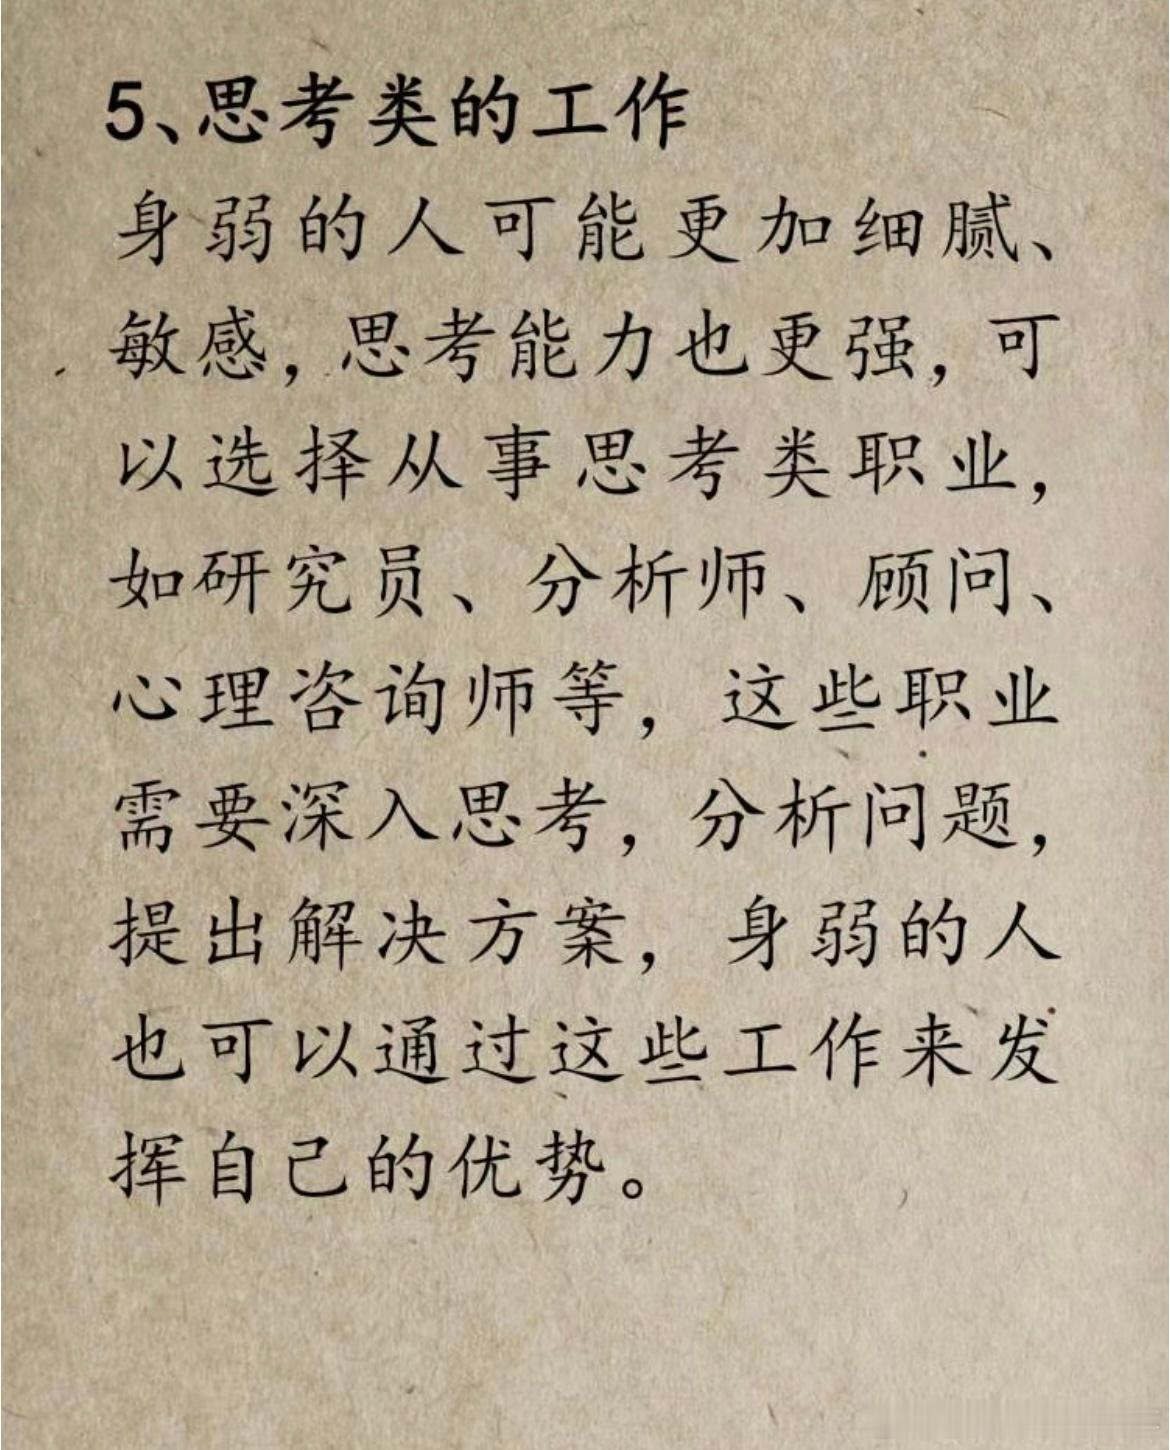 5、思考类的工作
身弱的人可能更加细腻、
敏感，思考能力也更强，可
以选择从事思考类职业，
如研究员、分析师、顾问、
心理咨询师等，这些职业
需要深入思考，分析问题，
提出解决方案，身弱的人
也可以通过这些工作来发
挥自己的优势。